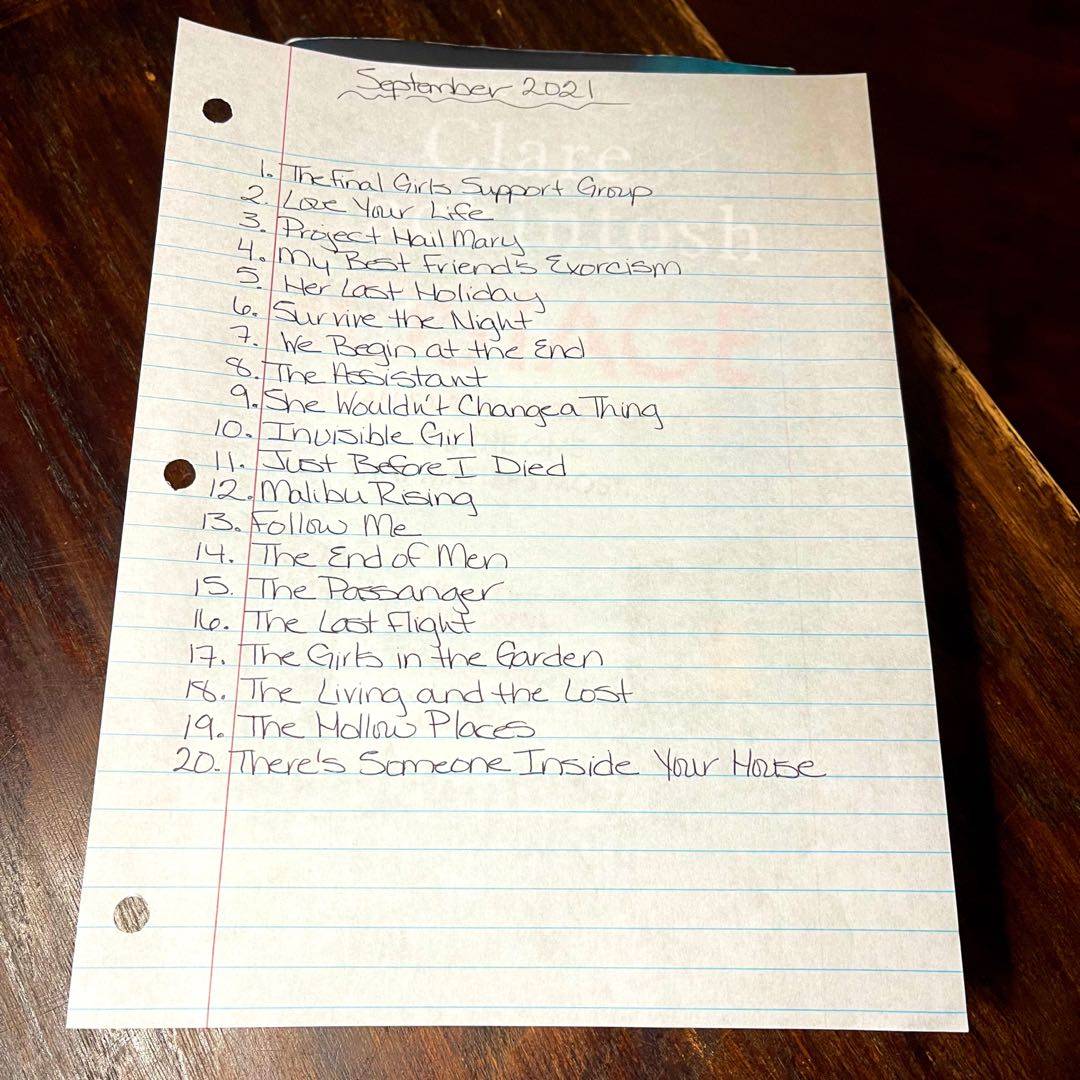 September 2021
Clare
1. The Final Girls Support Group
2. Love Your Life
3. Project Hail Mary
4. My Best Friend's Exorcism
5. Her Last Holiday
6. Survive the Night
7. We Begin at the End
8. The Assistant
9. She Wouldn't Change a Thing
10. Invisible Girl
11. Just Before I Died
12. Malibu Rising
13. Follow Me
14. The End of Men
15. The Passanger
16. The Last Flight
17. The Girls in the Garden
18. The Living and the Lost
19. The Hollow Places
20. There's Someone Inside Your House